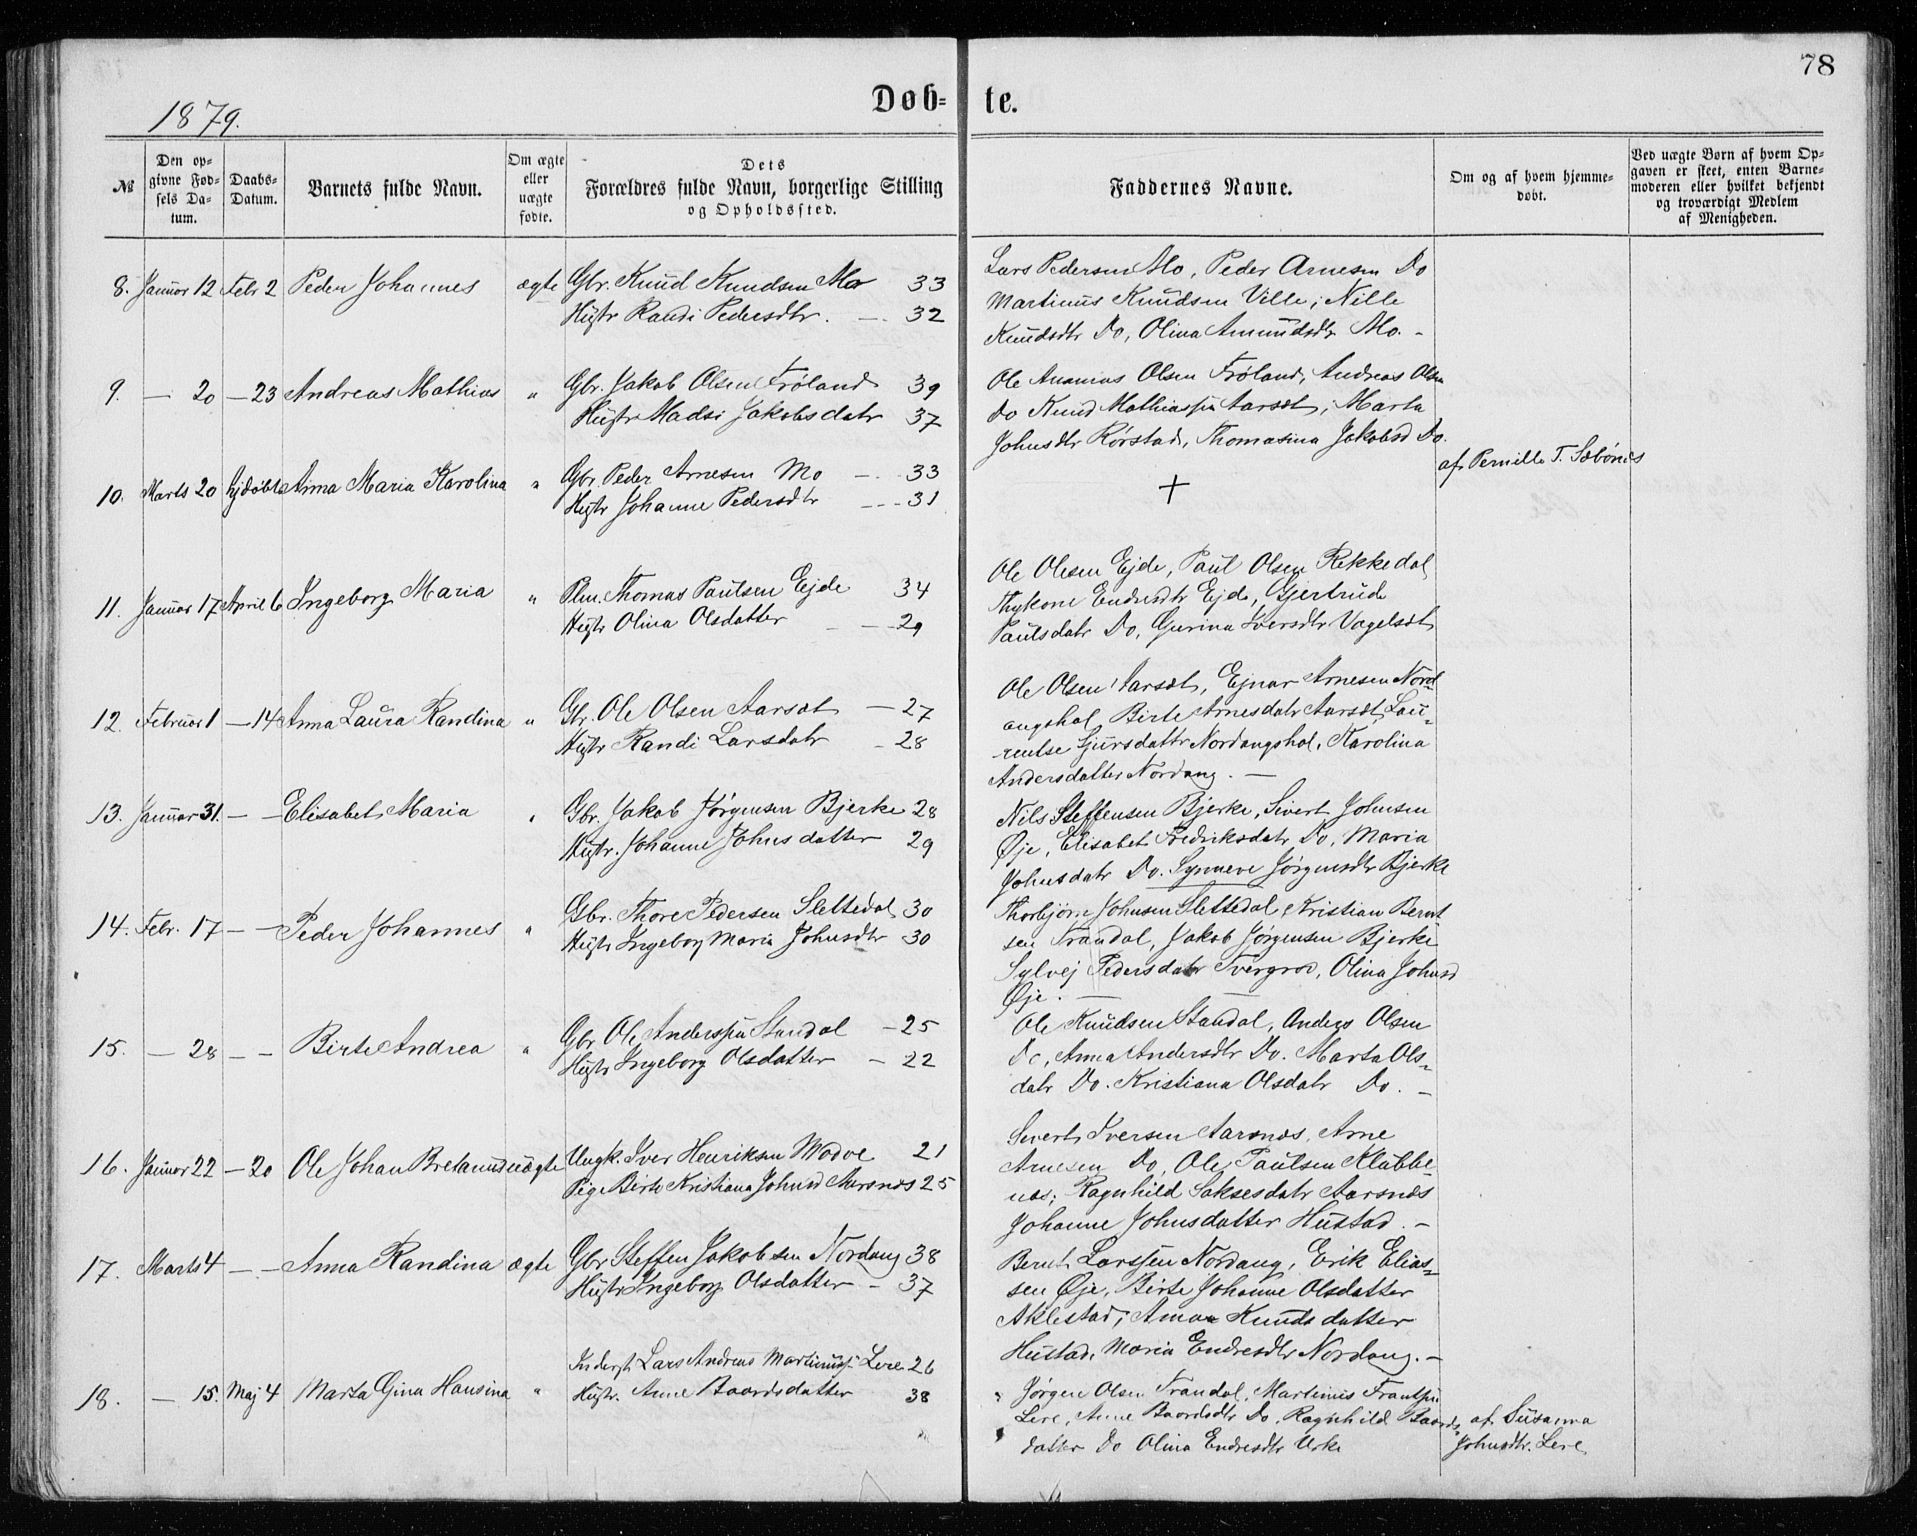 78
1879.
Døb- te.
№
Den op-
givne Fød-
sels Da-
tum.
Daabs-
Datum.
Barnets fulde Navn.
Om ægte
eller
uægte
fødte.
Dets
Forældres fulde Navn, borgerlige Stilling
og Opholdssted.
Faddernes Navne.
Om og af hvem hjemme-
døbt.
Ved uægte Børn af hvem Op-
gaven er skeet, enten Barne-
moderen eller hvilket bekjendt
og troværdigt Medlem
af Menigheden.
8. Januar 12 Febr 2 Peder Johannes ægte Gbr. Knud Knudsen Mo 33
Hustr Randi Pedersdtr. — 32
Lars Pedersen Mo, Peder Arnesen Do
Martinus Knudsen Ville, Nille
Knudsdtr Do, Olina Amundsdtr Mo. -
9. — 20 — 23 Andreas Mathias " Gbr. Jakob Olsen Frøland 39
Hustr Madsi Jakobsdatr 37
Ole Ananias Olsen Frøland, Andreas Olsen
Do Knud Mathiassen Aarsæt, Marta
Johnsdtr Rørstad, Thomasina Jakobsd Do.
10. Marts 20 hjdøbt Anna Maria Karolina " Gbr. Peder Arnesen Mo — 33
Hustr Johanne Pedersdtr — 31
+
af Pernille T. Sæbønes
11. Januar 17 April 6 Ingeborg Maria " Plm. Thomas Paulsen Ejde 34
Hustr Olina Olsdatter — 29
Ole Olesen Ejde, Paul Olsen Rekkedal
Thykone Endresdtr Ejde, Gjertrude
Paulsdatr Do, Gurina Iversdtr Vagelsæt
12. Februar 1 — 14 Anna Laura Randina " Gbr. Ole Olsen Aarsæt — 27
Hustr Randi Larsdatr - 28
Ole Olsen Aarsæt, Ejnar Arnesen Nord-
angshol, Birte Arnesdatr Aarsæt, Lau-
rentse Sjursdattr Nordangshol, Karolina
Andersdatter Nordang. —
13. Januar 31. — — Elisabet Maria " Gbr. Jakob Jørgensen Bjerke 28
Hustr. Johanne Johnsdatter 29
Nils Steffensen Bjerke, Sivert Johnsen
Øje, Elisabet Fredriksdatr Do, Maria
Johnsdatr Do. Synneve Jørgensdtr Bjerke
14. Febr. 17 — — Peder Johannes " Gbr. Thore Pedersen Slettedal 30
Hustr Ingeborg Maria Johnsdtr 30
Thorbjørn Johnsen Slettedal, Kristian Bernt
sen Trandal, Jakob Jørgensen Bjerke
Sylvej Pedersdatr Tvergrov, Olina Johnsd
Øje. —
15. — 28 — — Birte Andrea " Gbr Ole Anderssen Standal — 25
Hustr Ingeborg Olsdatter — 22
Ole Knudsen Standal, Anders Olsen
Do, Anna Andersdtr Do. Marta Ols-
datr Do. Kristiana Olsdatr Do. —
16. Januar 22 — 20 Ole Johan Bretanus uægte Ungk. Iver Henriksen Wadve 21
Pige Berte Kristiana Johnsd Aarsnes 25
Sivert Iversen Aarsnæs, Arne
Arnesen Do, Ole Paulsen Klubbe-
næs, Ragnhild Saksesdatr Aarsnæs
Johanne Johnsdatter Hustad. -
17. Marts 4 — — Anna Randina ægte Gbr Steffen Jakobsen Nordang 38
Hustr Ingeborg Olsdatter - 37
Bernt Larssen Nordang, Erik Elias-
sen Øje, Birte Johanne Olsdatter
Aklestad, Anna Knudsdatter
Hustad, Maria Endresdtr Nordang. —
18. — 15. Maj 4 Marta Gina Hansina " Inderst Lars Andreas Martinuss. Lere 26
Hustr. Anne Baardsdatter 38
" Jørgen Olsen Trandal, Martinus Frantsen
Lere, Anne Baardsdtr Do, Ragnhild Baards-
datter Do Olina Endresdtr Urke
af Susanna
Johnsdtr. Lere